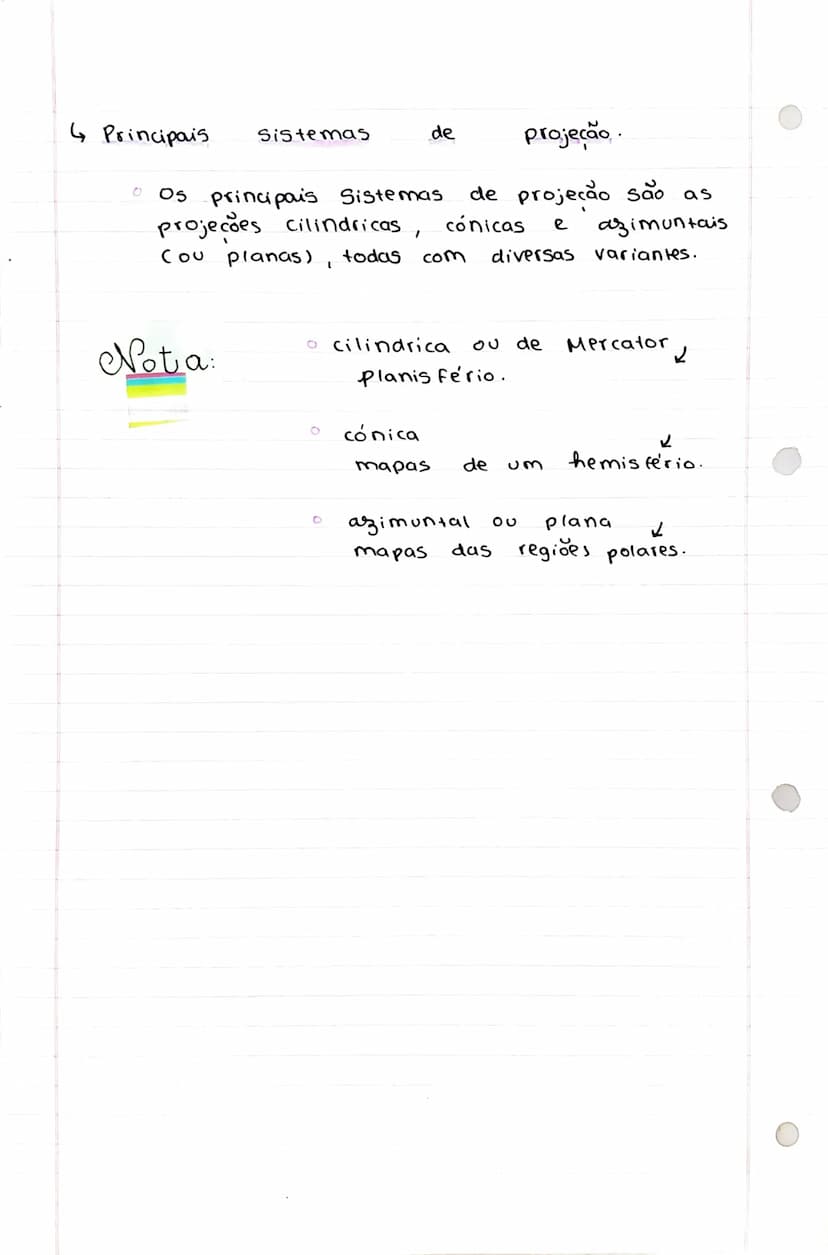 ↳ Principais sistemas de projeção.
Os principais sistemas de projeção são as
projeções cilíndricas, cónicas e azimuntais
(ou planas), todas com diversas variantes.
Nota:
cilíndrica ou de Mercator ↙
planisfério.
cónica ↙
mapas de um hemisfério.
azimuntal ou plana ↙
mapas das regiões polares.